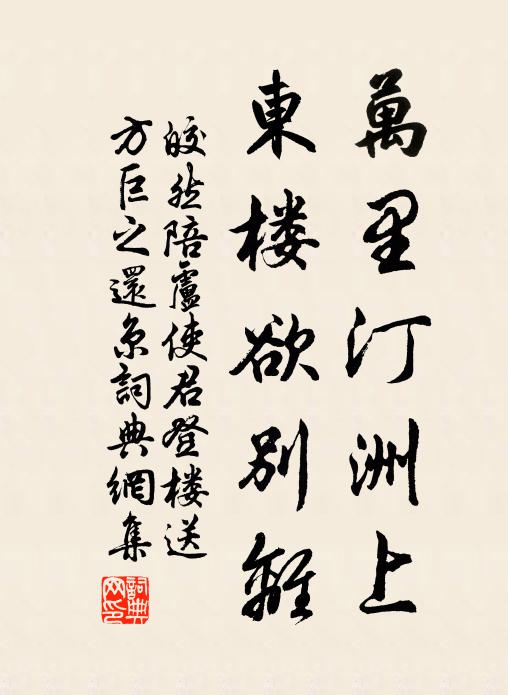 萬里汀洲上
東楼欲別離
皎然陪盧使君登楼送
方巨之還京詞典網集
詞典网印